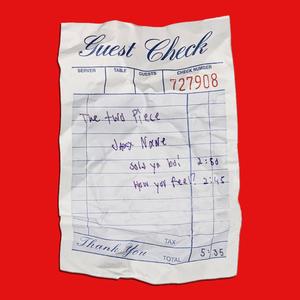 Guest Check
SERVER TABLE GUESTS CHECK NUMBER
727908
The two Piece
Nave
Sold yo boi 2:50
How you feel? 2:45
Thank You
TAX
TOTAL 5:35